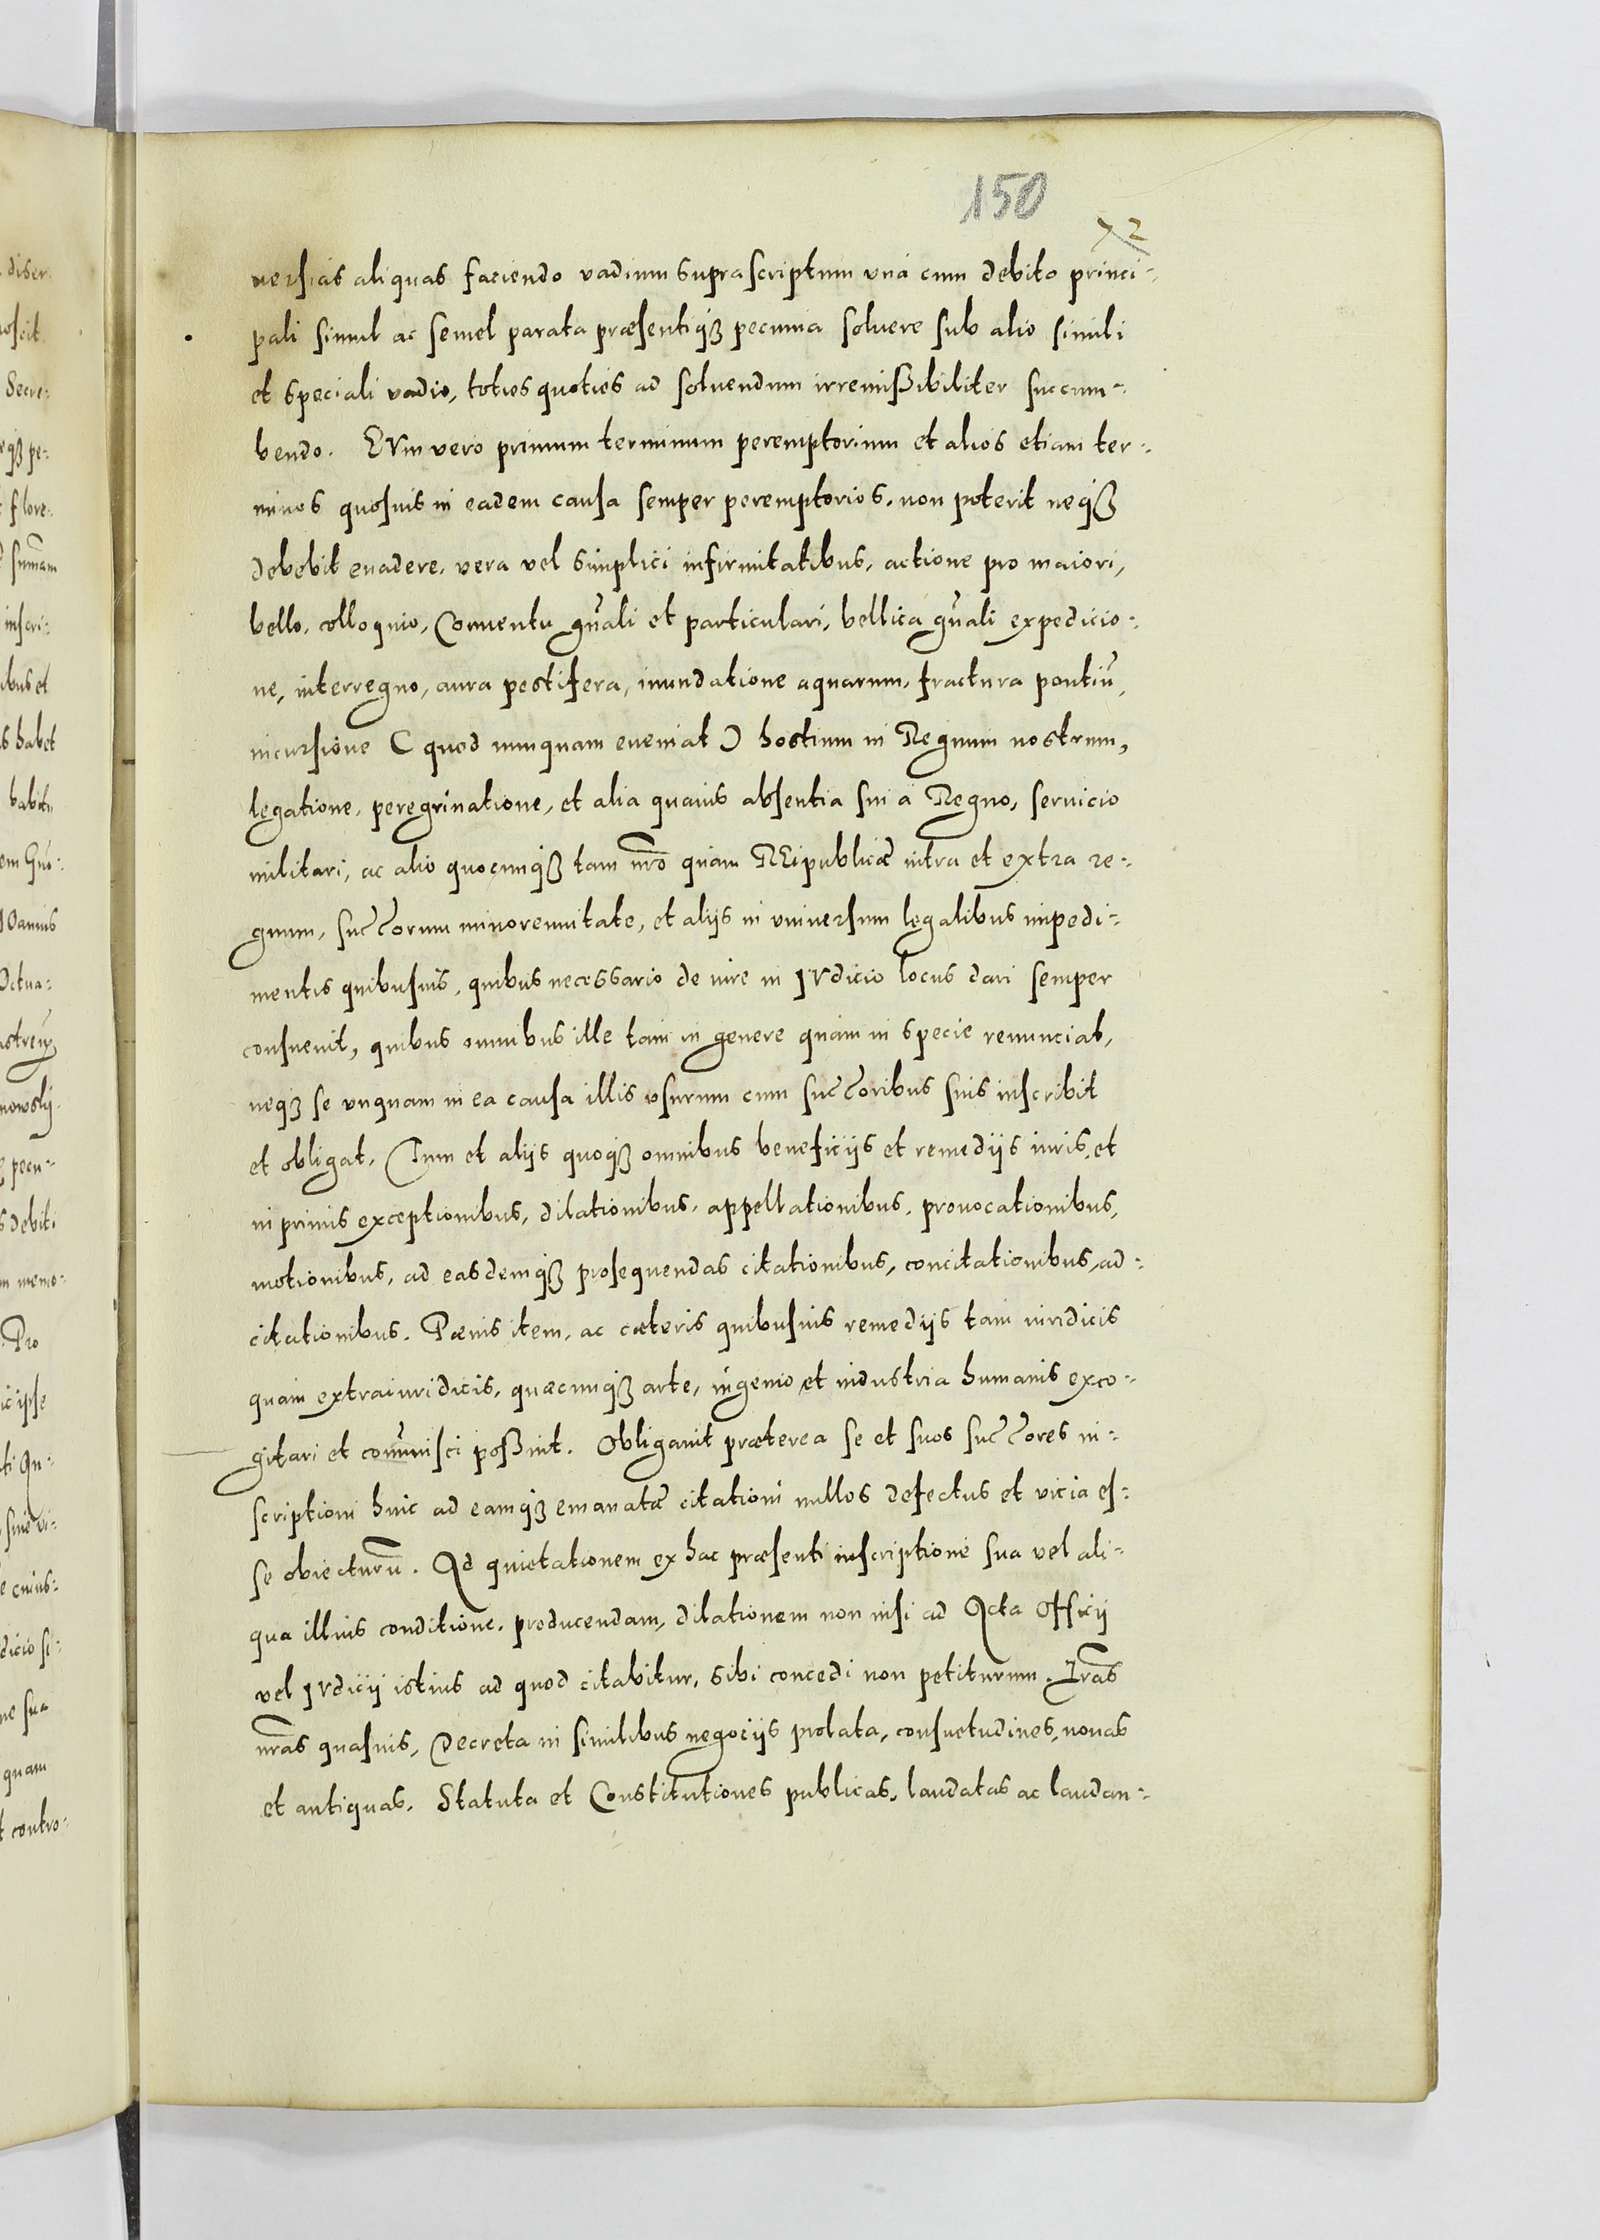 150
72
uersias aliquas faciendo vadium suprascriptum vna cum debito princi-
pali simul ac semel parata præsentiqꝫ pecunia soluere sub alio simili
et speciali vadio, toties quoties ad soluendum irremißibiliter succum-
bendo. EVm vero primum terminum peremptorium et alios etiam ter-
minos quosuis in eadem causa semper peremptorios, non poterit neqꝫ
debebit euadere, vera vel simplici infirmitatibus, actione pro maiori,
bello, colloquio, Conuentu gn̄ali et particulari, bellica gn̄ali expedicio-
ne, interregno, aura pestifera, inundatione aquarum, fractura pontiū,
incursione ( quod nunquam eueniat ) hostium in Regnum nostrum,
legatione, peregrinatione, et alia quauis absentia sui à Regno, seruicio
militari, ac alio quocunqꝫ tam nr̄o quam REipublicæ intra et extra re-
gnum, succ̄orum minorennitate, et alijs in vniuersum legalibus impedi-
mentis quibusuis, quibus necessario de iure in IVdicio locus dari semper
consueuit, quibus omnibus ille tam in genere quàm in specie renunciat,
neqꝫ se vnquam in ea causa illis vsurum cum succ̄oribus suis inscribit
et obligat. Tum et alijs quoqꝫ omnibus beneficijs et remedijs iuris, et
in primis exceptionibus, dilationibus, appellationibus, prouocationibus,
motionibus, ad easdemqꝫ prosequendas citationibus, concitationibus, ad-
citationibus. Pœnis item, ac cæteris quibusuis remedijs tam iuridicis
quam extraiuridicis, quæcunqꝫ arte, ingenio et industria humanis exco-
gitari et com̄inisci poßint. Obligauit præterea se et suos succ̄ores in-
scriptioni huic ad eamqꝫ emanatæ citationi nullos defectus et vicia es-
se obiecturū. Ad quietationem ex hac præsenti inscriptione sua vel ali-
qua illius conditione, producendam, dilationem non nisi ad Acta Officij
vel IVdicij istius ad quod citabitur, sibi concedi non petiturum. Lr̄as
nr̄as quasuis, Decreta in similibus negocijs prolata, consuetudines, nouas
et antiquas. Statuta et Constitutiones publicas, laudatas ac laudan-